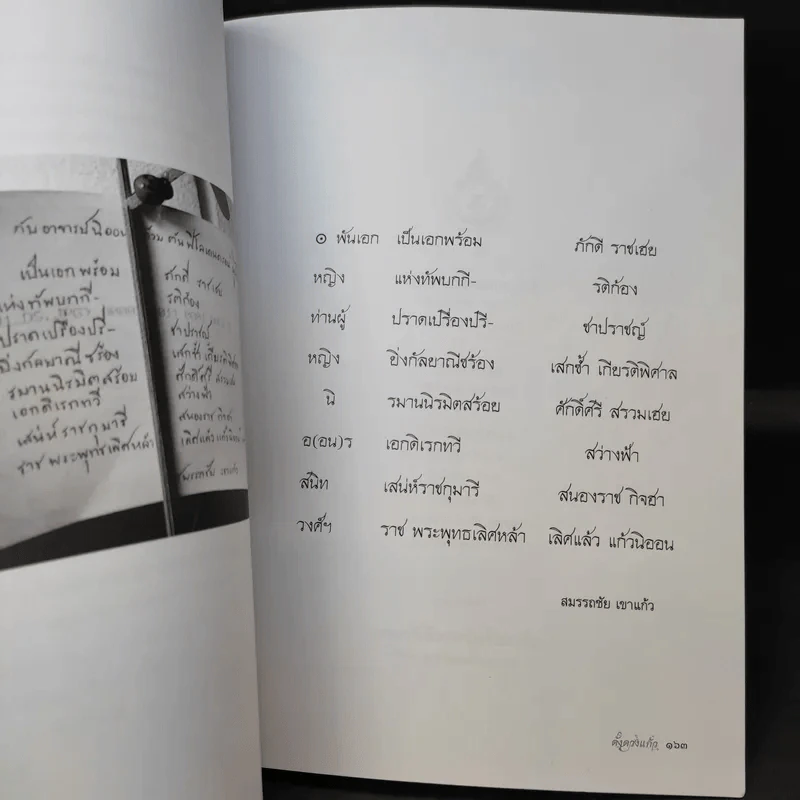 กับ อาจารย์นิออน
เป็นเอก พร้อม
แห่งทัพบกกี-
ปราดเปรื่องปรี-
อิ่งกัลยาณีชร้อง
รมานนิรมิตสร้อย
เอกดิเรกทวี
เสน่ห์ราชกุมารี
ราช พระพุทธเลิศหล้า
ภักดี ราชเฮย
รติก้อง
ชาปราชญ์
เสกซ้ำ เกียรติพิศาล
ศักดิ์ศรี สรวมเฮย
สว่างฟ้า
สนองราช กิจฮา
เลิศแล้ว แก้วนิออน
สมรรถชัย เขาแก้ว
๑ พันเอก เป็นเอกพร้อม ภักดี ราชเฮย
หญิง แห่งทัพบกกี- รติก้อง
ท่านผู้ ปราดเปรื่องปรี- ชาปราชญ์
หญิง อิ่งกัลยาณีชร้อง เสกซ้ำ เกียรติพิศาล
นิ รมานนิรมิตสร้อย ศักดิ์ศรี สรวมเฮย
อ(อน)ร เอกดิเรกทวี สว่างฟ้า
สนิท เสน่ห์ราชกุมารี สนองราช กิจฮา
วงศ์ฯ ราช พระพุทธเลิศหล้า เลิศแล้ว แก้วนิออน
สมรรถชัย เขาแก้ว
ดั่งดวงแก้ว ๑๖๓